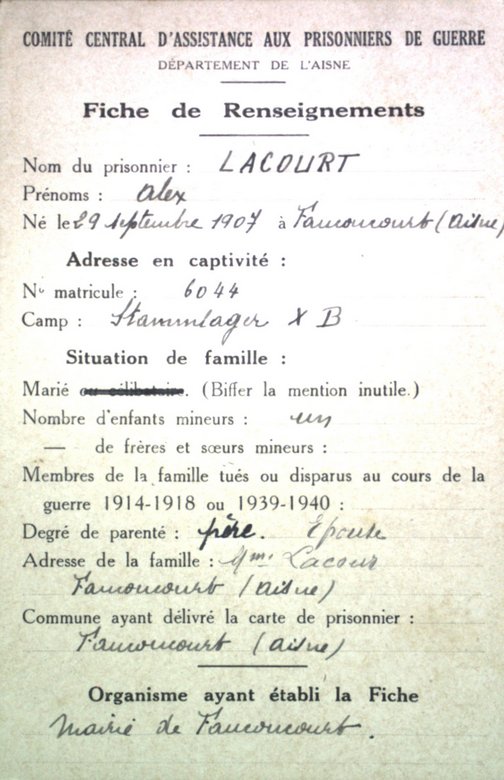 COMITÉ CENTRAL D'ASSISTANCE AUX PRISONNIERS DE GUERRE
DÉPARTEMENT DE L'AISNE
Fiche de Renseignements
Nom du prisonnier : LACOURT
Prénoms : Alex
Né le 29 septembre 1907 à Fauconcourt (Aisne)
Adresse en captivité :
N° matricule : 6044
Camp : Stammlager X B
Situation de famille :
Marié ou célibataire. (Biffer la mention inutile.)
Nombre d'enfants mineurs : un
— de frères et sœurs mineurs :
Membres de la famille tués ou disparus au cours de la
guerre 1914-1918 ou 1939-1940 :
Degré de parenté : père. Epouse
Adresse de la famille : Mme Lacour
Fauconcourt (Aisne)
Commune ayant délivré la carte de prisonnier :
Fauconcourt (Aisne)
Organisme ayant établi la Fiche
Mairie de Fauconcourt.